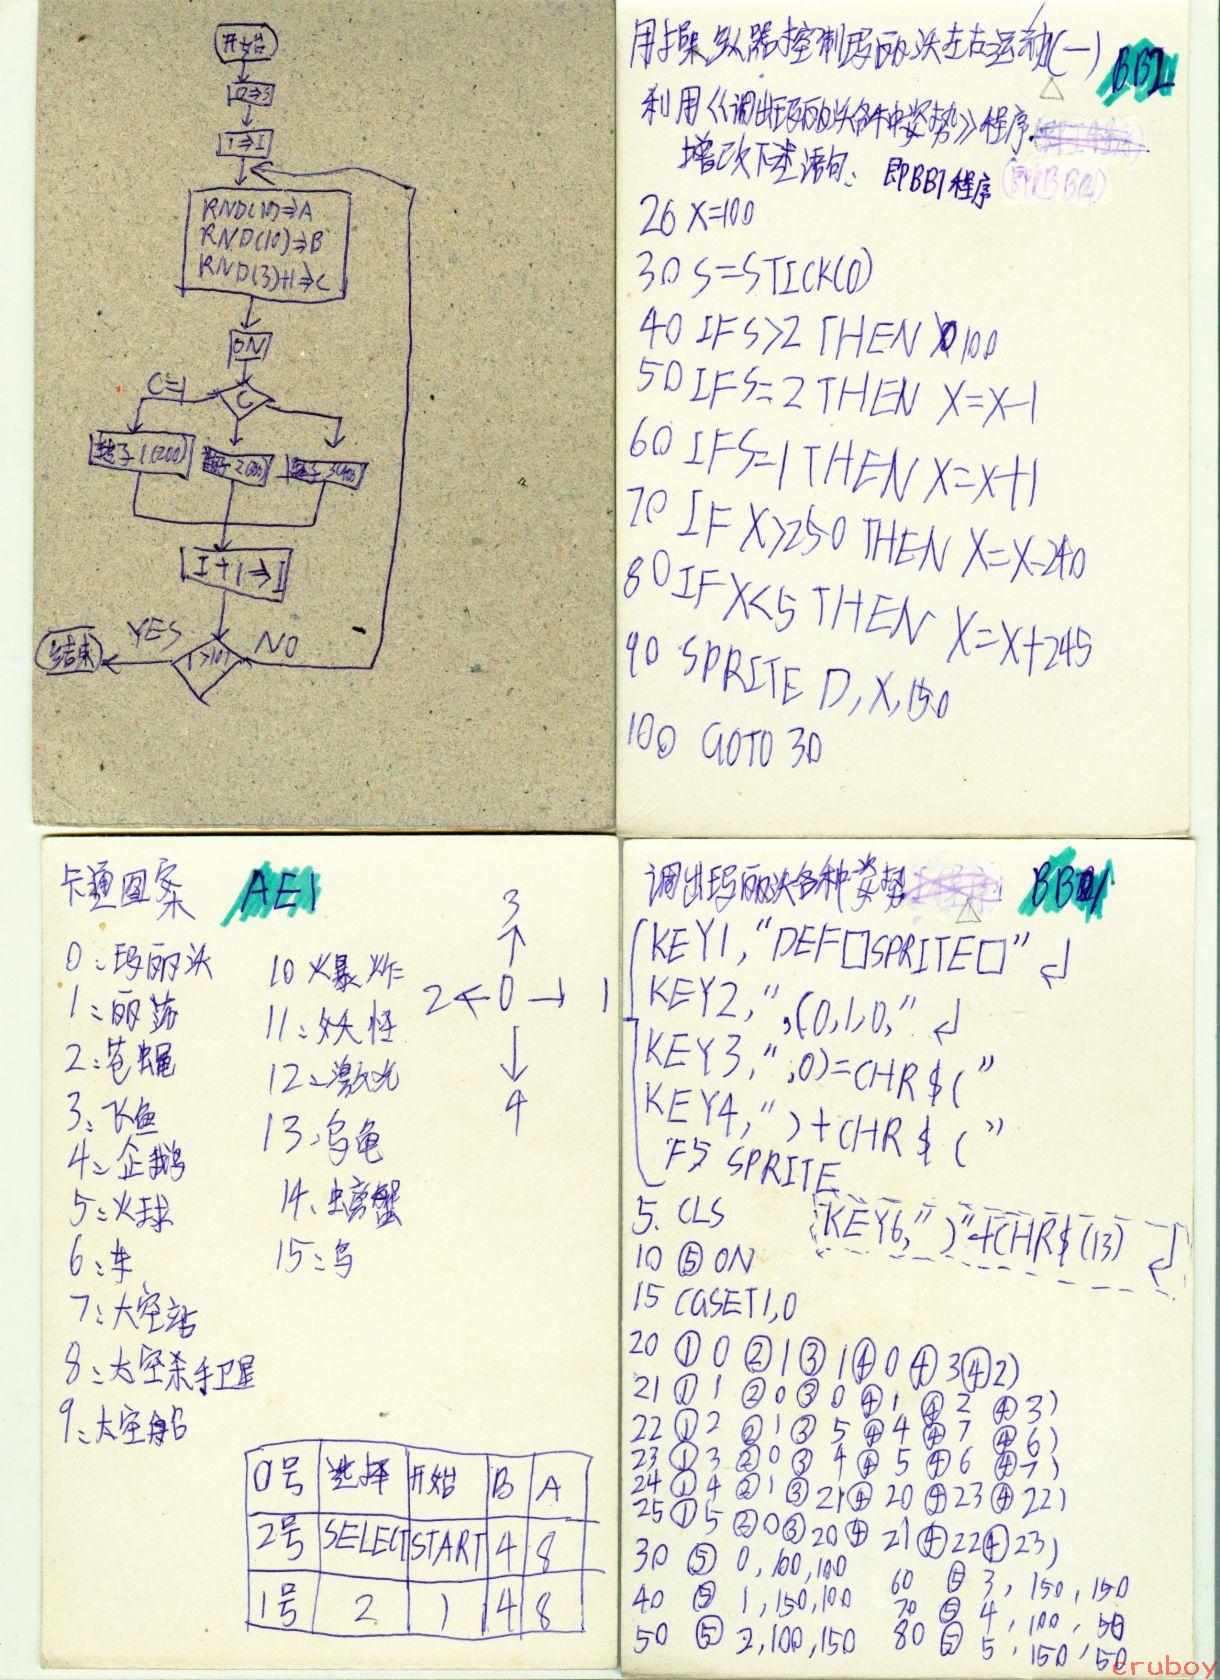 开始
0⇒S
1⇒I
RND(10)⇒A
RND(10)⇒B
RND(3)+1⇒C
ON
C=1
C
转子1(200)
I+1⇒I
YES
NO
结束
用操纵器控制玛丽沃左右运动(一) BB2
利用《调出玛丽沃各种姿势》程序
增改下述语句: 即BB1程序
26 X=100
30 S=STICK(0)
40 IF S>2 THEN 100
50 IF S=2 THEN X=X-1
60 IF S=1 THEN X=X+1
70 IF X>250 THEN X=X-240
80 IF X<5 THEN X=X+245
90 SPRITE D,X,150
100 GOTO 30
卡通图案 AE1
0:玛丽沃
1:丽莎
2:苍蝇
3:飞鱼
4:企鹅
5:火球
6:车
7:太空站
8:太空杀手卫星
9:太空船
10:爆炸
11:妖怪
12:激光
13:乌龟
14:螃蟹
15:鸟
3
2 ← 0 → 1
4
0号 选择 开始 B A
2号 SELECT START 4 8
1号 2 1 4 8
调出玛丽沃各种姿势 BB1
KEY1,"DEF□SPRITE□"↲
KEY2,",(0,1,0,"↲
KEY3,",0)=CHR$("
KEY4,")+CHR$("
F5 SPRITE
KEY6,")"+CHR$(13)↲
5. CLS
10 ⑤ ON
15 CGSET1,0
20 ① 0 ② 1 ③ 1 ④ 0 ④ 3 ④ 2)
21 ① 1 ② 0 ③ 0 ④ 1 ④ 2 ④ 3)
22 ① 2 ② 1 ③ 5 ④ 4 ④ 7 ④ 6)
23 ① 3 ② 0 ③ 4 ④ 5 ④ 6 ④ 7)
24 ① 4 ② 1 ③ 21 ④ 20 ④ 23 ④ 22)
25 ① 5 ② 0 ③ 20 ④ 21 ④ 22 ④ 23)
30 ⑤ 0,100,100
40 ⑤ 1,150,100
50 ⑤ 2,100,150
60 ⑤ 3,150,150
70 ⑤ 4,100,50
80 ⑤ 5,150,50
cruboy